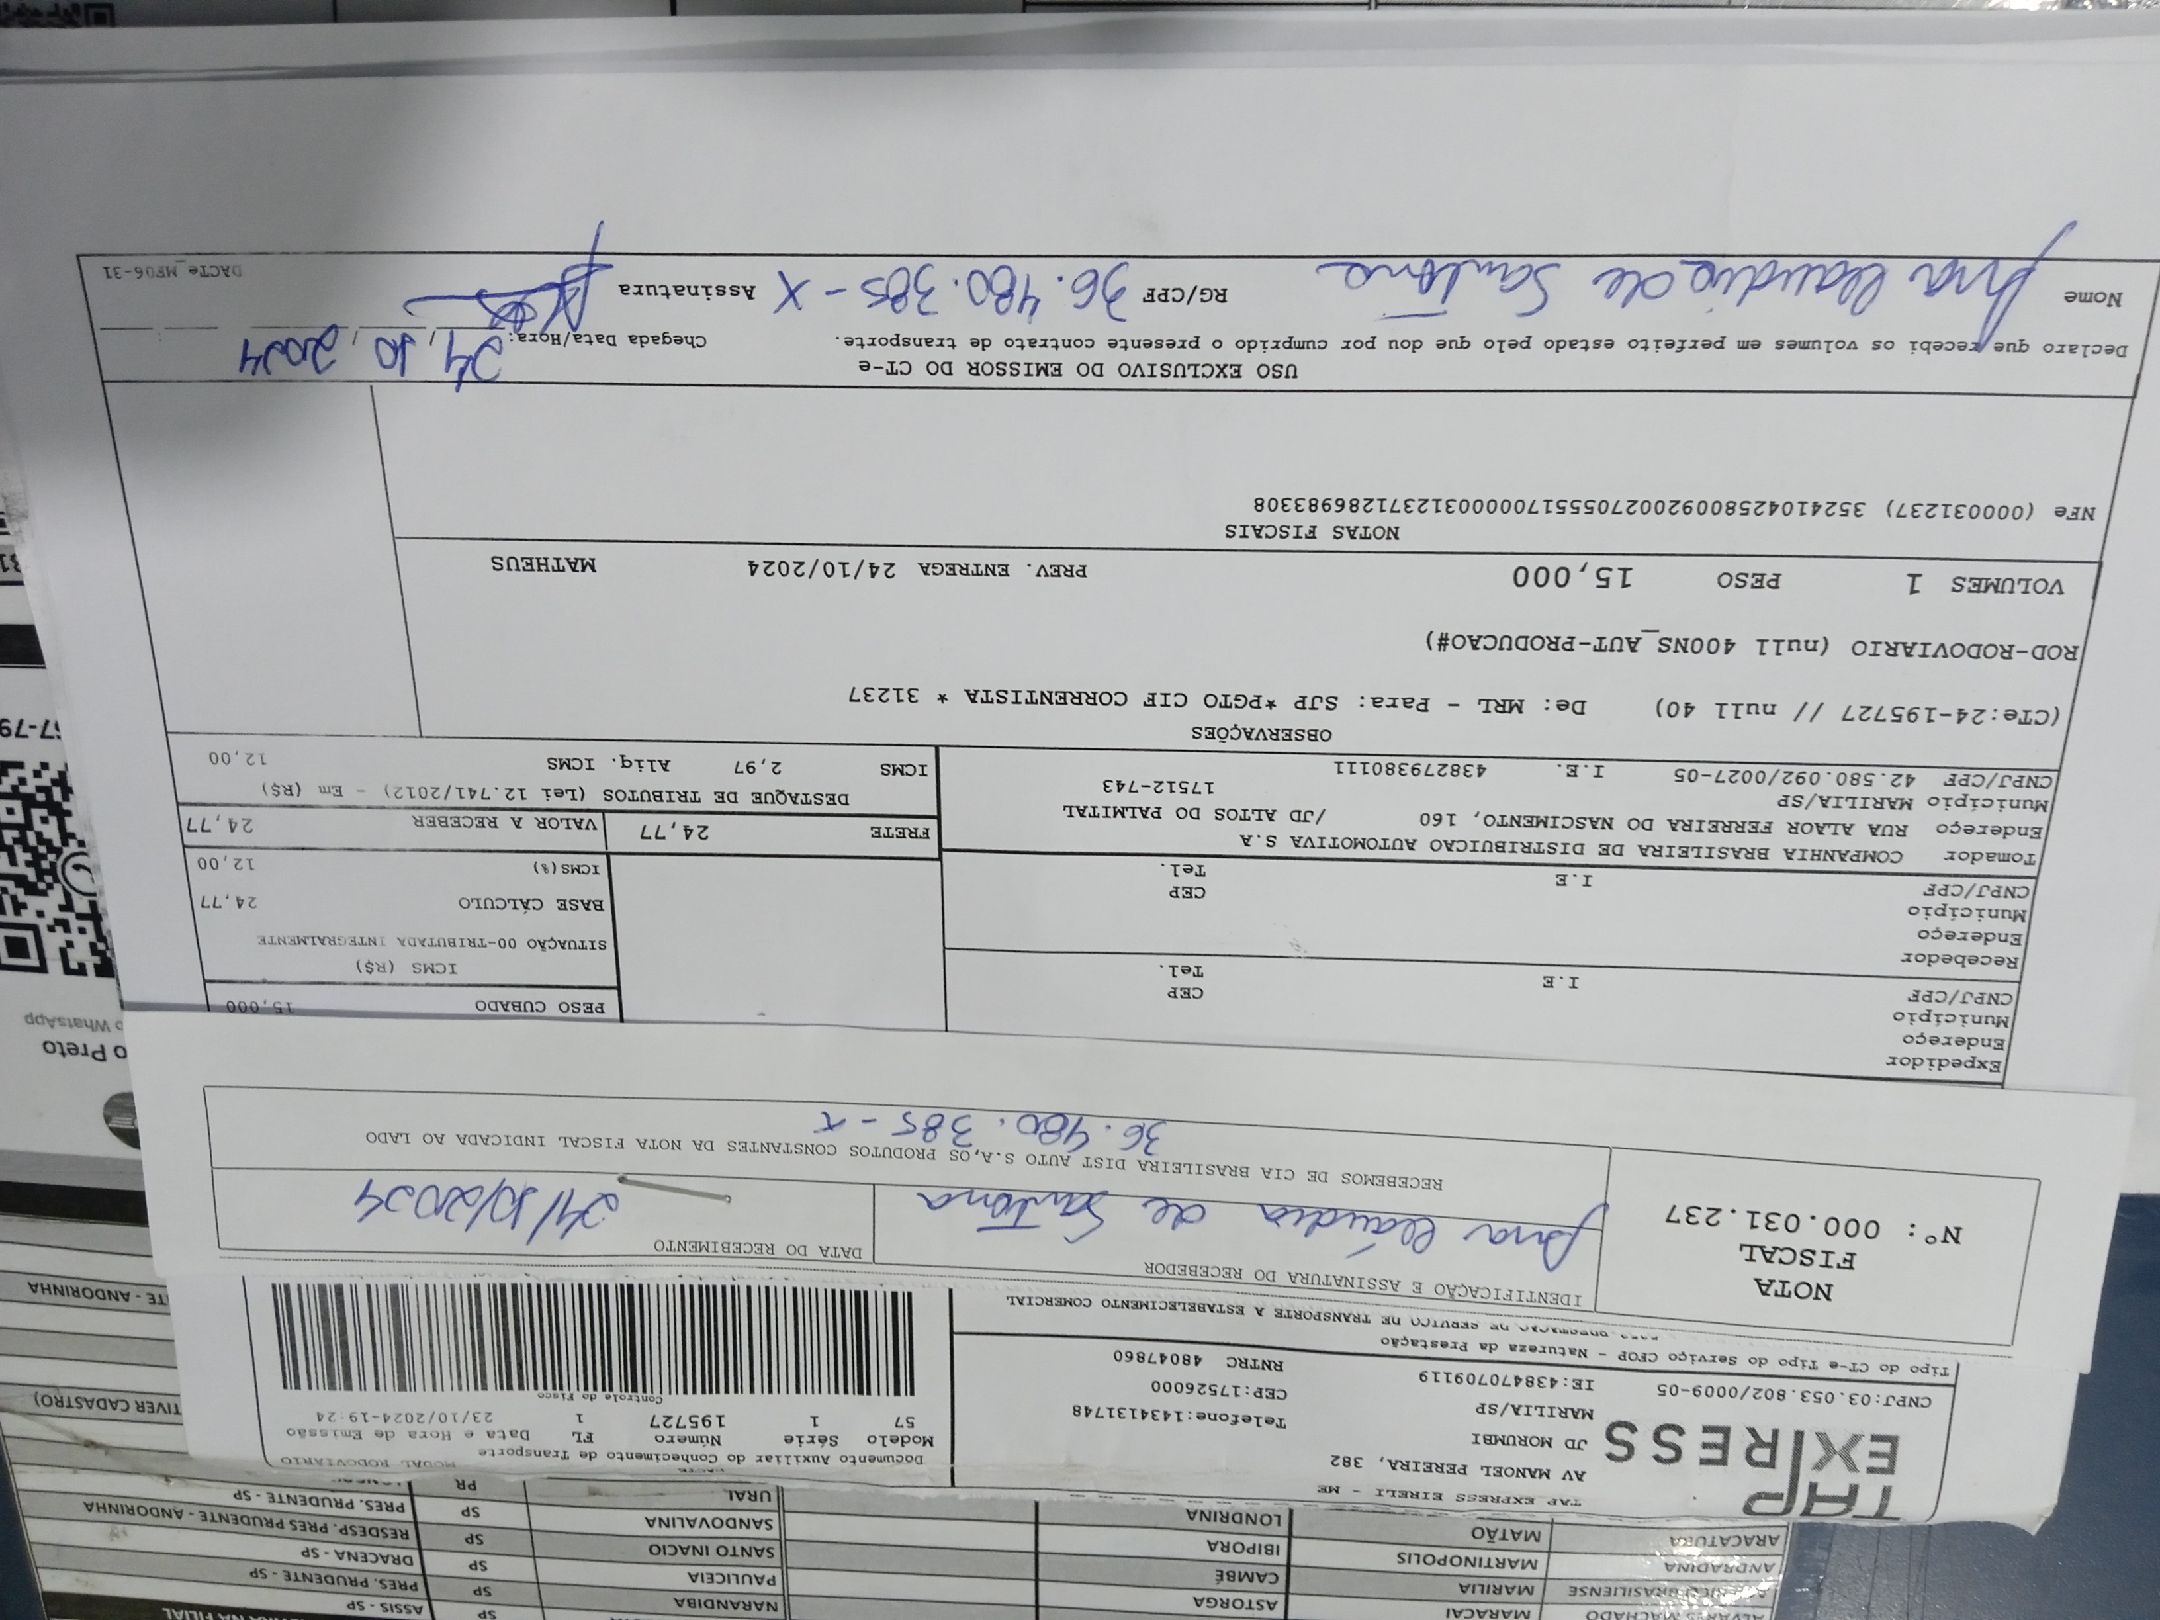 TAP
EXPRESS
TAP EXPRESS EIRELI - ME
AV MANOEL PEREIRA, 382
JD MORUMBI
MARILIA/SP
Telefone:1434131748
CEP:17526000
CNPJ:03.802.053.053/0009-05
IE:438470709119
RNTRC 48047860
Documento Auxiliar do Conhecimento de Transporte
MODAL RODOVIÁRIO
Modelo Série Número FL Data e Hora de Emissão
57 1 195727 1 23/10/2024-19:24
Controle do Fisco
Tipo do CT-e Tipo do Serviço CFOP - Natureza da Prestação
DE SERVIÇO DE TRANSPORTE A ESTABELECIMENTO COMERCIAL
NOTA
FISCAL
Nº: 000.031.237
IDENTIFICAÇÃO E ASSINATURA DO RECEBEDOR
Ana Cláudia de Santana
DATA DO RECEBIMENTO
24/10/2024
RECEBEMOS DE CIA BRASILEIRA DIST AUTO S.A,OS PRODUTOS CONSTANTES DA NOTA FISCAL INDICADA AO LADO
36.480.385-x
Expedidor
Endereço
Município CEP
CNPJ/CPF I.E Tel.
Recebedor
Endereço
Município CEP
CNPJ/CPF I.E Tel.
Tomador COMPANHIA BRASILEIRA DE DISTRIBUICAO AUTOMOTIVA S.A
Endereço RUA ALAOR FERREIRA DO NASCIMENTO, 160 /JD ALTOS DO PALMITAL
Município MARILIA/SP 17512-743
CNPJ/CPF 42.580.092/0027-05 I.E. 438279380111
PESO CUBADO 15,000
ICMS (R$)
SITUAÇÃO 00-TRIBUTADA INTEGRALMENTE
BASE CÁLCULO 24,77
ICMS(%) 12,00
FRETE 24,77 VALOR A RECEBER 24,77
DESTAQUE DE TRIBUTOS (Lei 12.741/2012) - Em (R$)
ICMS 2,97 Aliq. ICMS 12,00
OBSERVAÇÕES
(CTe:24-195727 // null 40) De: MRL - Para: SJP *PGTO CIF CORRENTISTA * 31237
ROD-RODOVIARIO (null 400NS_AUT-PRODUCAO#)
VOLUMES 1 PESO 15,000 PREV. ENTREGA 24/10/2024 MATHEUS
NOTAS FISCAIS
NFe (000031237) 35241042580092002705551700000312371286983308
USO EXCLUSIVO DO EMISSOR DO CT-e
Declaro que recebi os volumes em perfeito estado pelo que dou por cumprido o presente contrato de transporte.
Chegada Data/Hora: 24/10/2024
Nome Ana Claudia de Santana RG/CPF 36.480.385-X Assinatura
DACTe_MF06-31
ARACATUBA MATÃO LONDRINA
ANDRADINA MARTINOPOLIS IBIPORA
MARILIA CAMBÉ
MARACAI ASTORGA
URAI PR
SANDOVALINA SP PRES. PRUDENTE - SP
SANTO INACIO SP RESDESP. PRES PRUDENTE - ANDORINHA
PAULICEIA SP DRACENA - SP
NARANDIBA SP PRES. PRUDENTE - SP
SP ASSIS - SP
TIVER CADASTRO)
TE - ANDORINHA
o Preto
WhatsApp